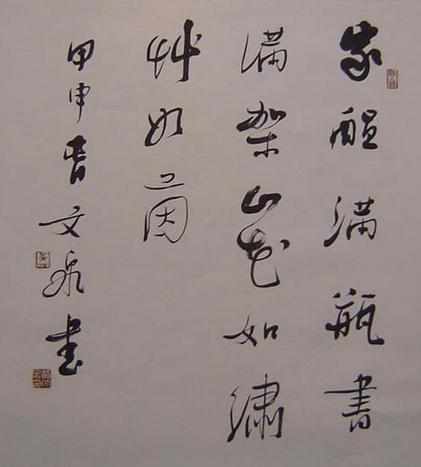 家醞滿瓶書
滿架山花如繡
艸如茵
甲申春文書